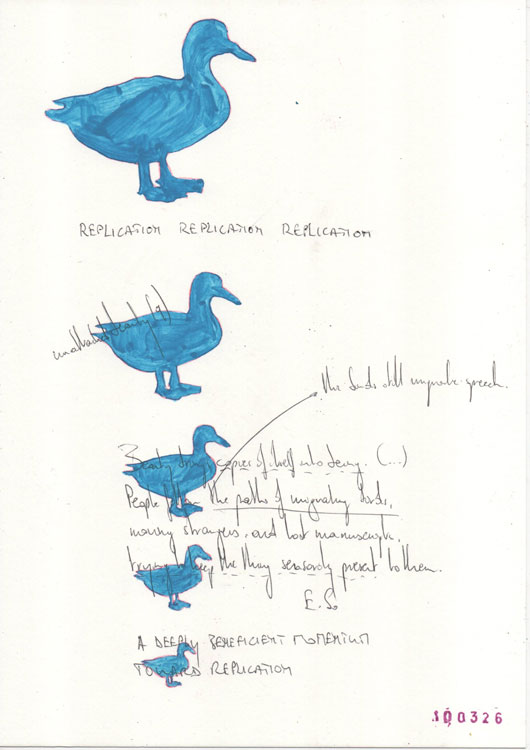 REPLICATION REPLICATION REPLICATION
the birds still migrate
Beauty brings copies of itself into being. (...)
People follow the paths of migrating birds,
moving strangers, and lost manuscripts,
trying to keep the thing sensorily present to them.
E.S.
A DEEPLY BENEFICIENT MOMENTUM
TOWARD REPLICATION
100326